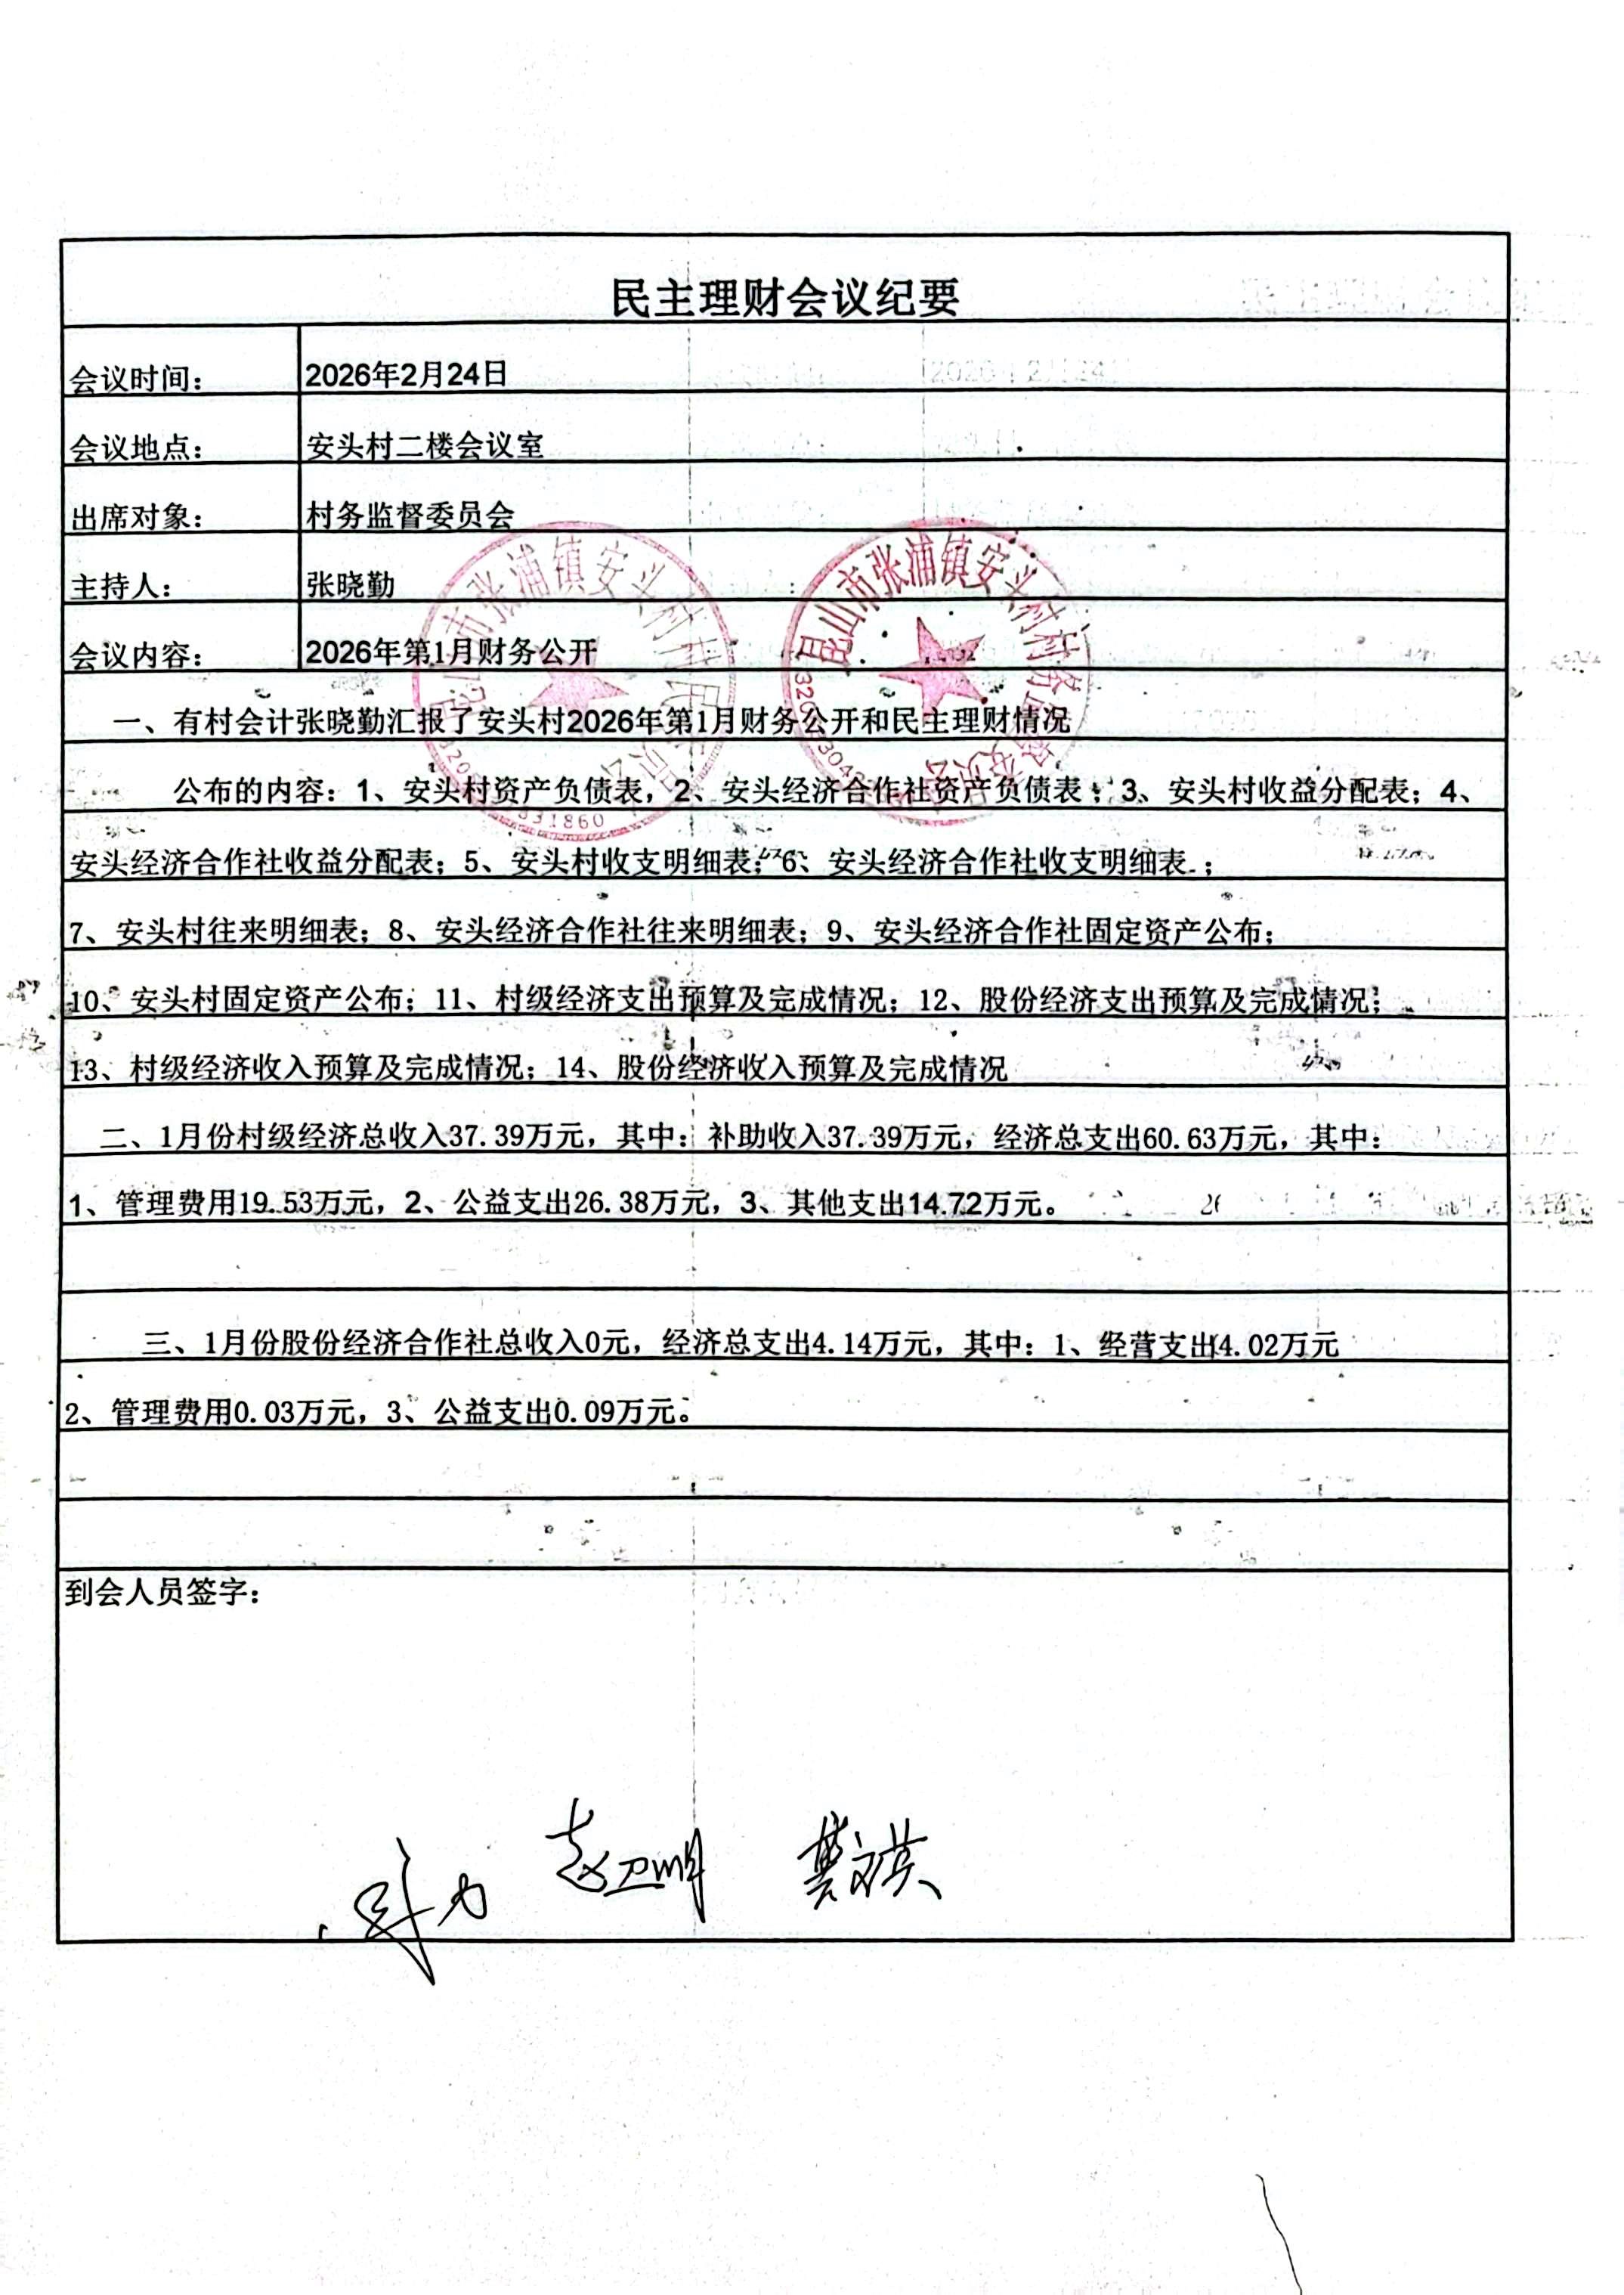 民主理财会议纪要
会议时间： 2026年2月24日
会议地点： 安头村二楼会议室
出席对象： 村务监督委员会
主持人： 张晓勤
会议内容： 2026年第1月财务公开
一、有村会计张晓勤汇报了安头村2026年第1月财务公开和民主理财情况
公布的内容：1、安头村资产负债表，2、安头经济合作社资产负债表；3、安头村收益分配表；4、
安头经济合作社收益分配表；5、安头村收支明细表；6、安头经济合作社收支明细表；
7、安头村往来明细表；8、安头经济合作社往来明细表；9、安头经济合作社固定资产公布；
10、安头村固定资产公布；11、村级经济支出预算及完成情况；12、股份经济支出预算及完成情况；
13、村级经济收入预算及完成情况；14、股份经济收入预算及完成情况
二、1月份村级经济总收入37.39万元，其中：补助收入37.39万元，经济总支出60.63万元，其中：
1、管理费用19.53万元，2、公益支出26.38万元，3、其他支出14.72万元。
三、1月份股份经济合作社总收入0元，经济总支出4.14万元，其中：1、经营支出4.02万元
2、管理费用0.03万元，3、公益支出0.09万元。
到会人员签字：
赵卫明
昆山市张浦镇安头村村民委员会
昆山市张浦镇安头村村务监督委员会